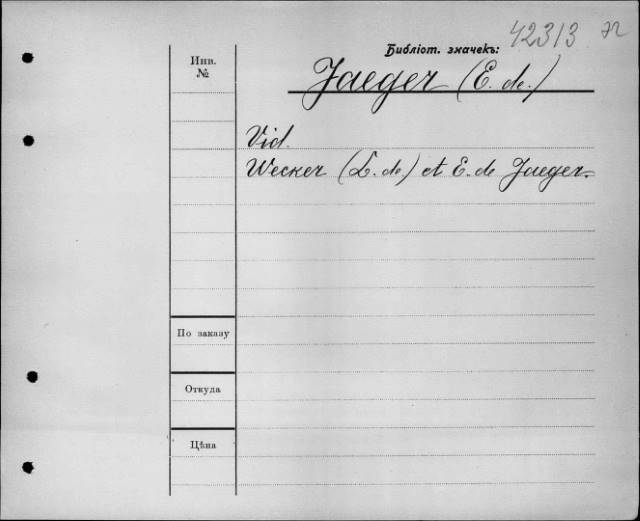 Библіот. значекъ: 42313
Инв.
№
Jaeger (E. de.)
Vid.
Wecker (L. de.) et E. de Jaeger.
По заказу
Откуда
Цѣна